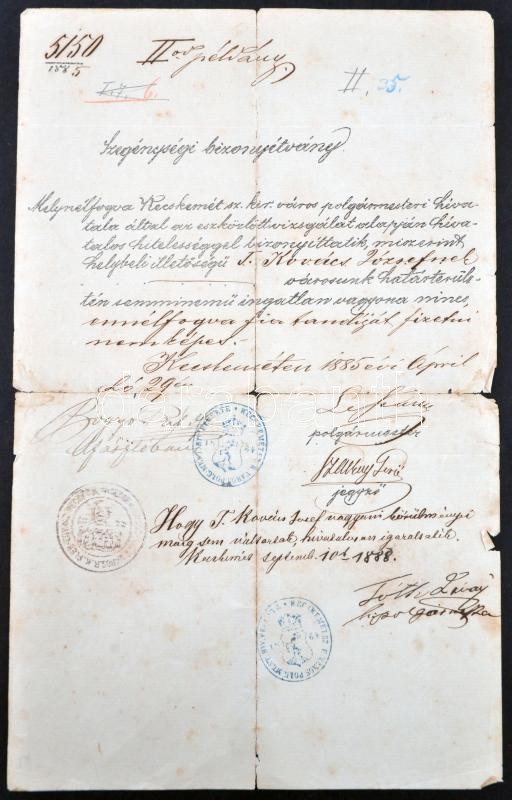 5150
1885
II od példány.
II. 25.
Szegénységi bizonyítvány.
Melynélfogva Kecskemét sz. kir. város polgármesteri hiva-
tala által az eszközlött vizsgálat alapján hiva-
talos hitelességgel bizonyittatik, miszerint
helybeli illetőségű T. Kovács Józsefnek
városunk határterüle-
tén semminemű ingatlan vagyona nincs,
ennélfogva fia tandiját fizetni
nem képes.-
Kecskeméten 1885 évi April
hó 29én
polgármester
jegyző
Hogy T. Kovács József vagyoni körülményei
máig sem változtak, hivatalosan igazoltatik
Kecskemét septemb. 10. 1888.
Tóth
h. polgármester